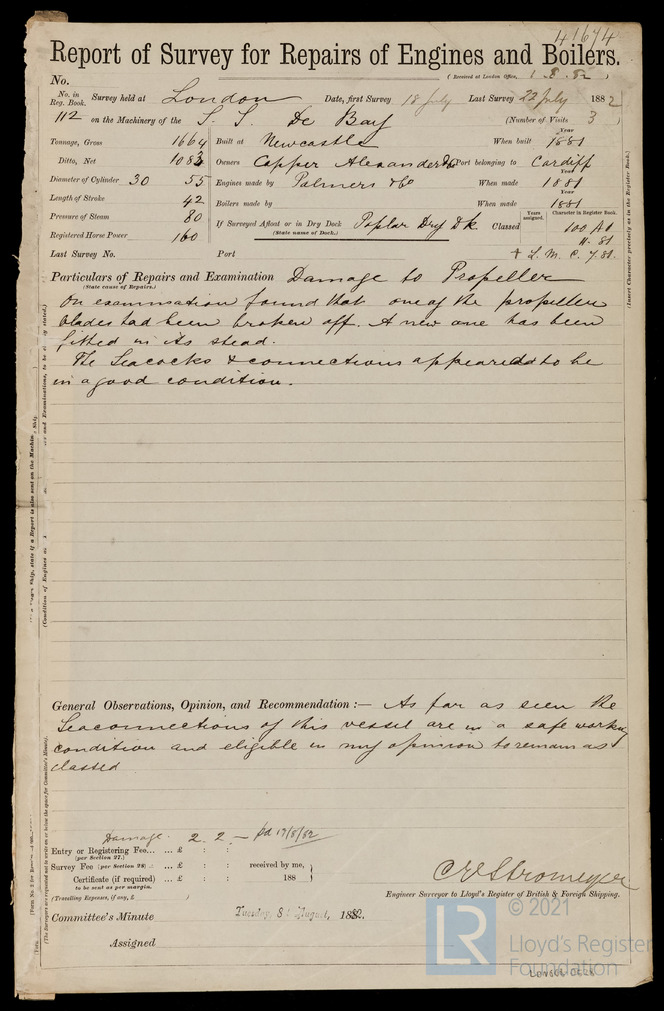 41674
Report of Survey for Repairs of Engines and Boilers.
(Received at London Office, 1. 8. 82)
No.
No. in Reg. Book. Survey held at London Date, first Survey 18 July Last Survey 22 July 1882
112 on the Machinery of the S. S. De Bay (Number of Visits 3)
Tonnage, Gross 1664 Built at Newcastle When built Year 1881
Ditto, Net 1083 Owners Capper Alexander & Co Port belonging to Cardiff
Diameter of Cylinder 30 55 Engines made by Palmers & Co When made Year 1881
Length of Stroke 42 Boilers made by When made Year 1881
Pressure of Steam 80 If Surveyed Afloat or in Dry Dock Poplar Dry Dk. Classed Years assigned. Character in Register Book. 100 A1
(State name of Dock.) 11. 81
Registered Horse Power 160
Last Survey No. Port L. M. C. 7.81.
Particulars of Repairs and Examination Damage to Propeller
(State cause of Repairs.)
On examination found that one of the propeller
blades had been broken off. A new one has been
fitted in its stead.
The Seacocks & connections appeared to be
in a good condition.
General Observations, Opinion, and Recommendation :— As far as seen the
Seaconnections of this vessel are in a safe working
condition and eligible in my opinion to remain as
classed
Damage. 2. 2. — pd 17/8/82
Entry or Registering Fee... ... £ : :
(per Section 27.)
Survey Fee (per Section 28) ... £ : : received by me,
Certificate (if required) ... £ : : 188
to be sent as per margin.
(Travelling Expenses, if any, £ )
C E Stromeyer
Engineer Surveyor to Lloyd's Register of British & Foreign Shipping.
Committee's Minute Tuesday, 8th August, 1882.
Assigned
(Insert Character precisely as in the Register Book.)
LR
© 2021
Lloyd's Register
Foundation